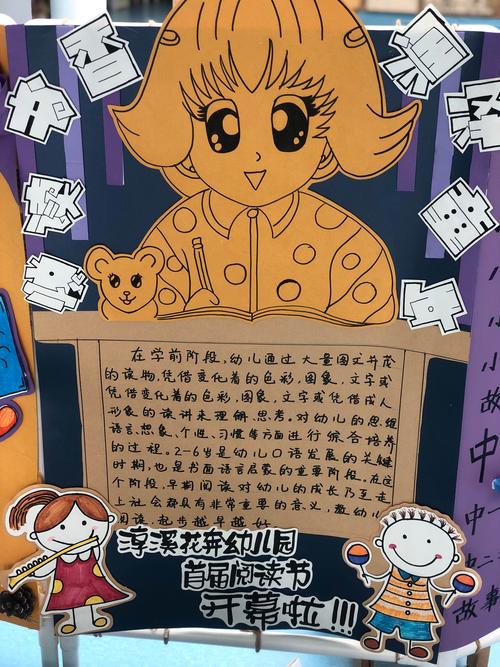 书
香
在学前阶段,幼儿通过大量图文并茂
的读物,凭借变化着的色彩,图象、文字或
凭借变化着的色彩,图象、文字或凭借成人
形象的读讲来理解、思考。对幼儿的思维
语言、想象、个性、习惯等方面进行综合培养
的过程。2-6岁是幼儿口语发展的关键
时期,也是书面语言启蒙的重要阶段。在这
个阶段,早期阅读对幼儿的成长乃至走
上社会都具有非常重要的意义,教幼儿
阅读,起步越早越好
淳溪花奔幼儿园
首届阅读节
开幕啦!!!
小
小
小
故
中
中一
中二
故事